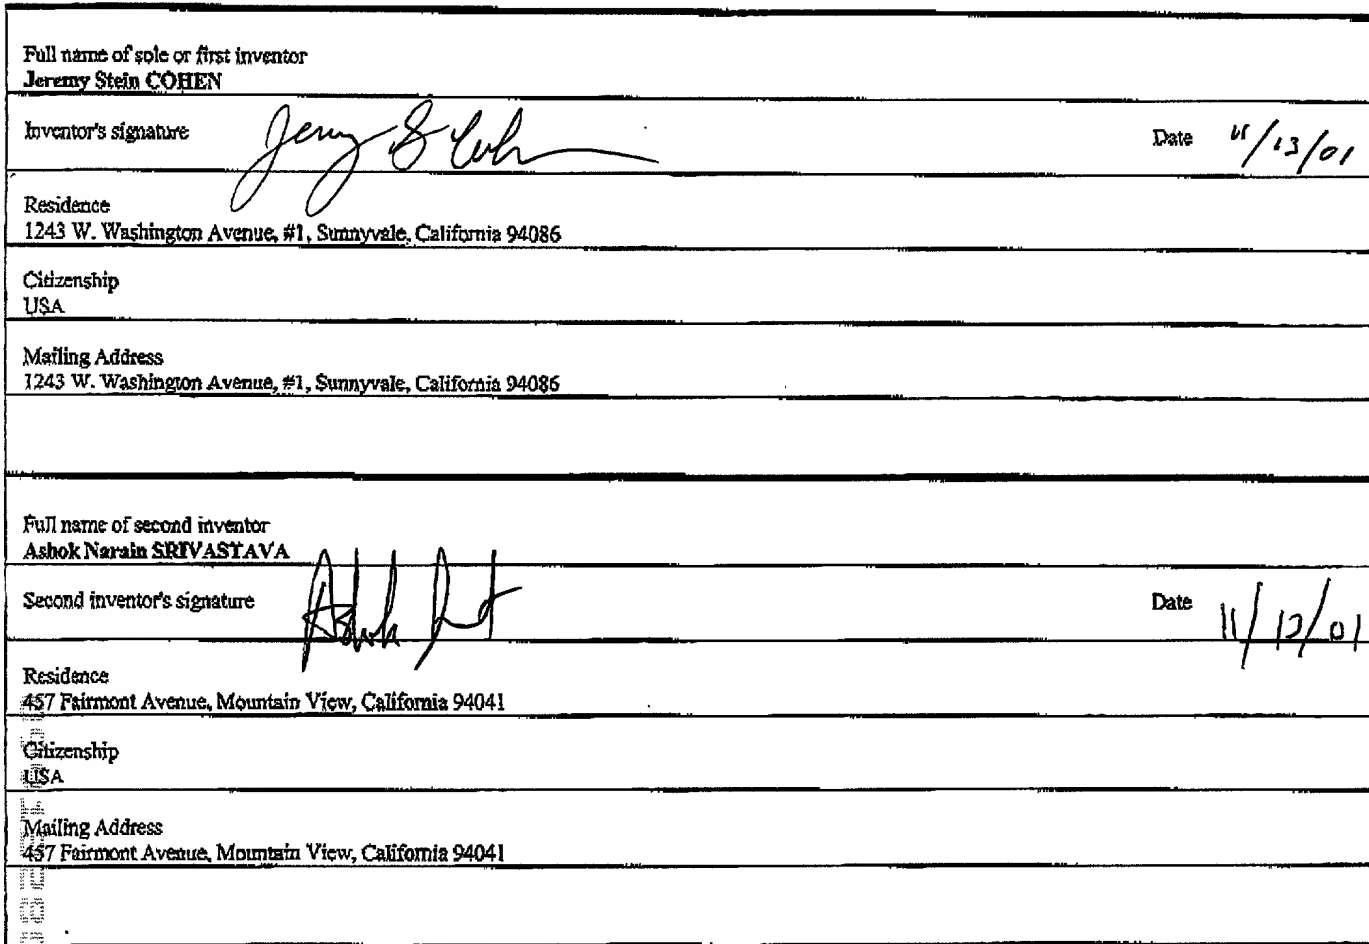 Full name of sole or first inventor
Jeremy Stein COHEN
Inventor's signature Jeremy S Cohen Date 11/13/01
Residence
1243 W. Washington Avenue, #1, Sunnyvale, California 94086
Citizenship
USA
Mailing Address
1243 W. Washington Avenue, #1, Sunnyvale, California 94086
Full name of second inventor
Ashok Narain SRIVASTAVA
Second inventor's signature Ashok Date 11/12/01
Residence
457 Fairmont Avenue, Mountain View, California 94041
Citizenship
USA
Mailing Address
457 Fairmont Avenue, Mountain View, California 94041